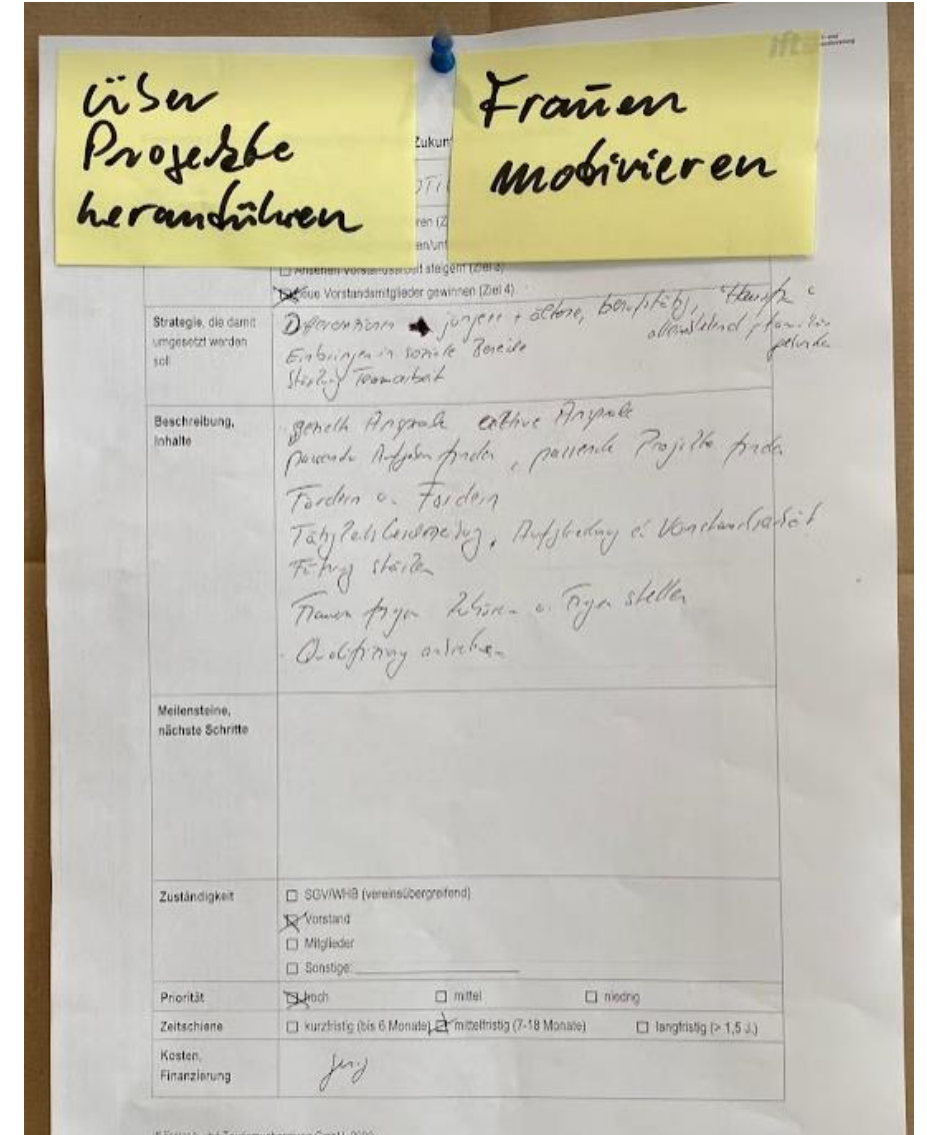 über
Projekte
heranführen
Frauen
motivieren
ift
Zukun
OTI
ren (Z
en/unt
☐ Ansehen Vorstandsarbeit steigern (Ziel 3)
☒ neue Vorstandsmitglieder gewinnen (Ziel 4)
Strategie, die damit
umgesetzt werden
soll
jüngere + ältere, berufstätig,
alleinstehend, familiär
gebunden
Einbringen in soziale Bereiche
Stärkung Teamarbeit
Beschreibung,
Inhalte
gezielte Ansprache aktive Ansprache
passende Aufgaben finden, passende Projekte finden
Fordern u. Fördern
Aufgliederung Vorstandsarbeit
Führung stärken
Frauen fragen Zuhören u. Fragen stellen
Qualifizierung anbieten
Meilensteine,
nächste Schritte
Zuständigkeit
☐ SGV/WHB (vereinsübergreifend)
☒ Vorstand
☐ Mitglieder
☐ Sonstige:
Priorität
☒ hoch ☐ mittel ☐ niedrig
Zeitschiene
☐ kurzfristig (bis 6 Monate) ☒ mittelfristig (7-18 Monate) ☐ langfristig (> 1,5 J.)
Kosten,
Finanzierung